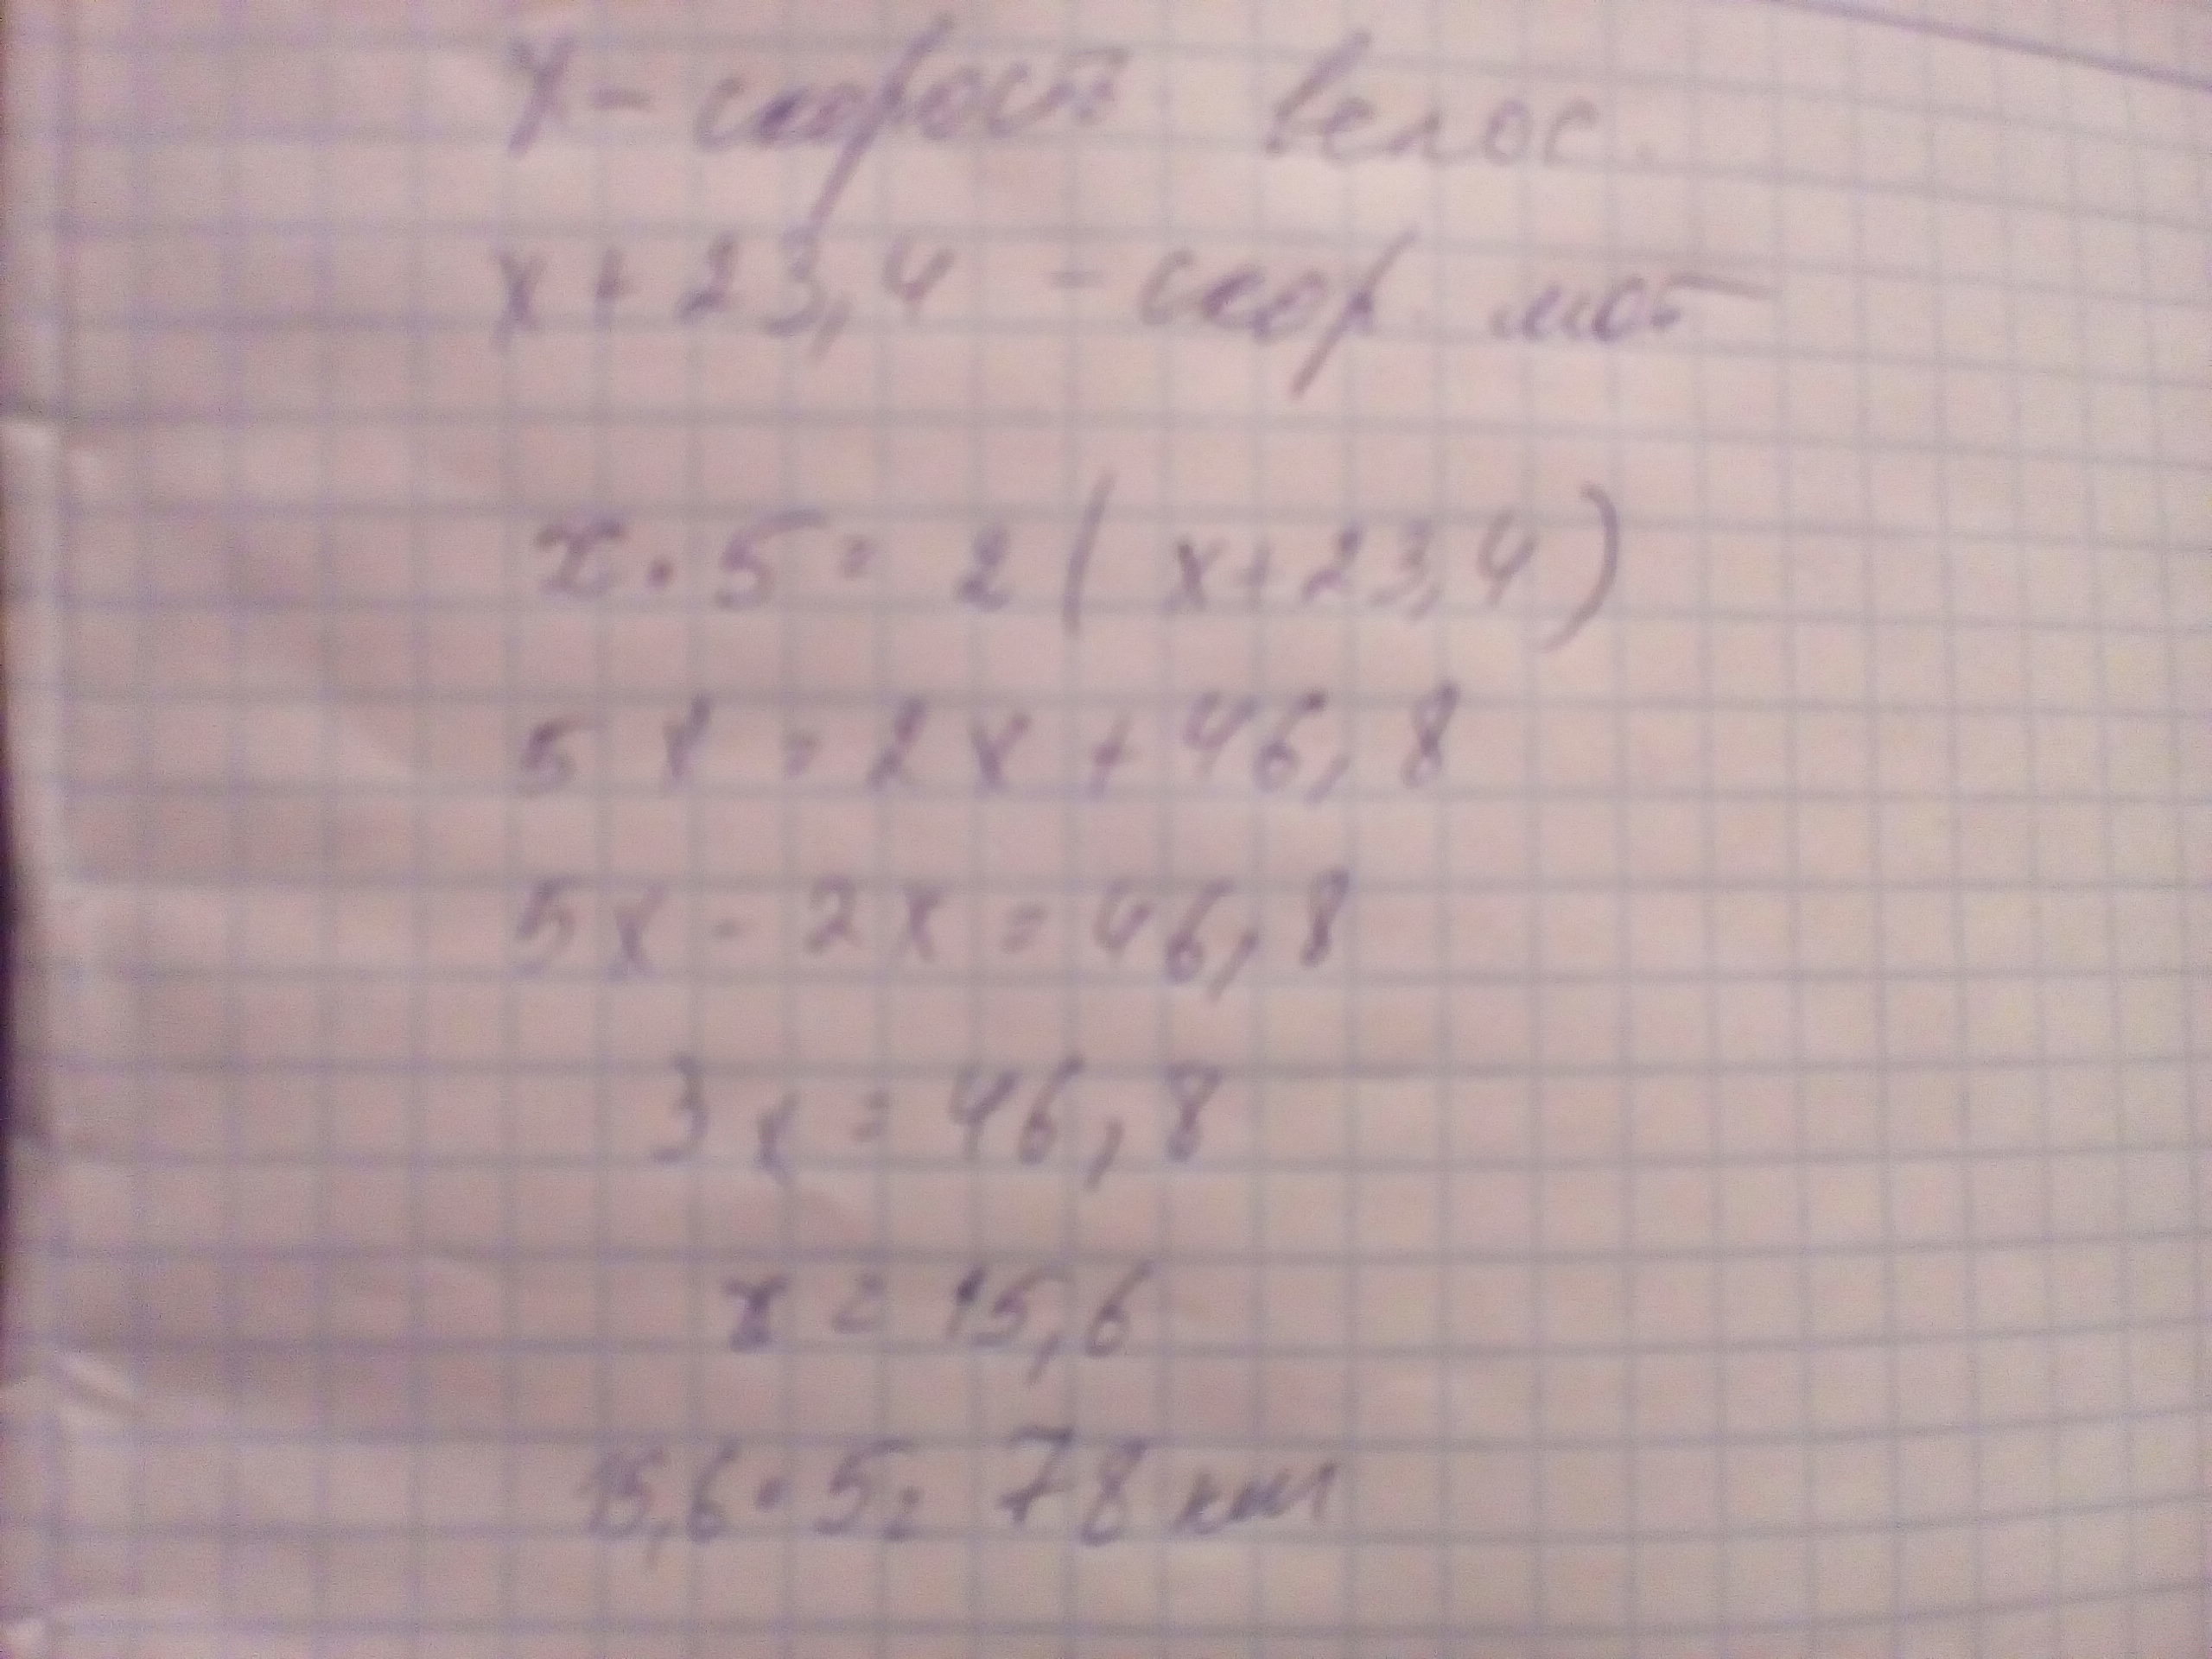 x - скорость велос.
x + 23,4 - скор. мот
x · 5 = 2 ( x + 23,4 )
5 x = 2 x + 46,8
5x - 2x = 46,8
3x = 46,8
x = 15,6
15,6 · 5 = 78 км